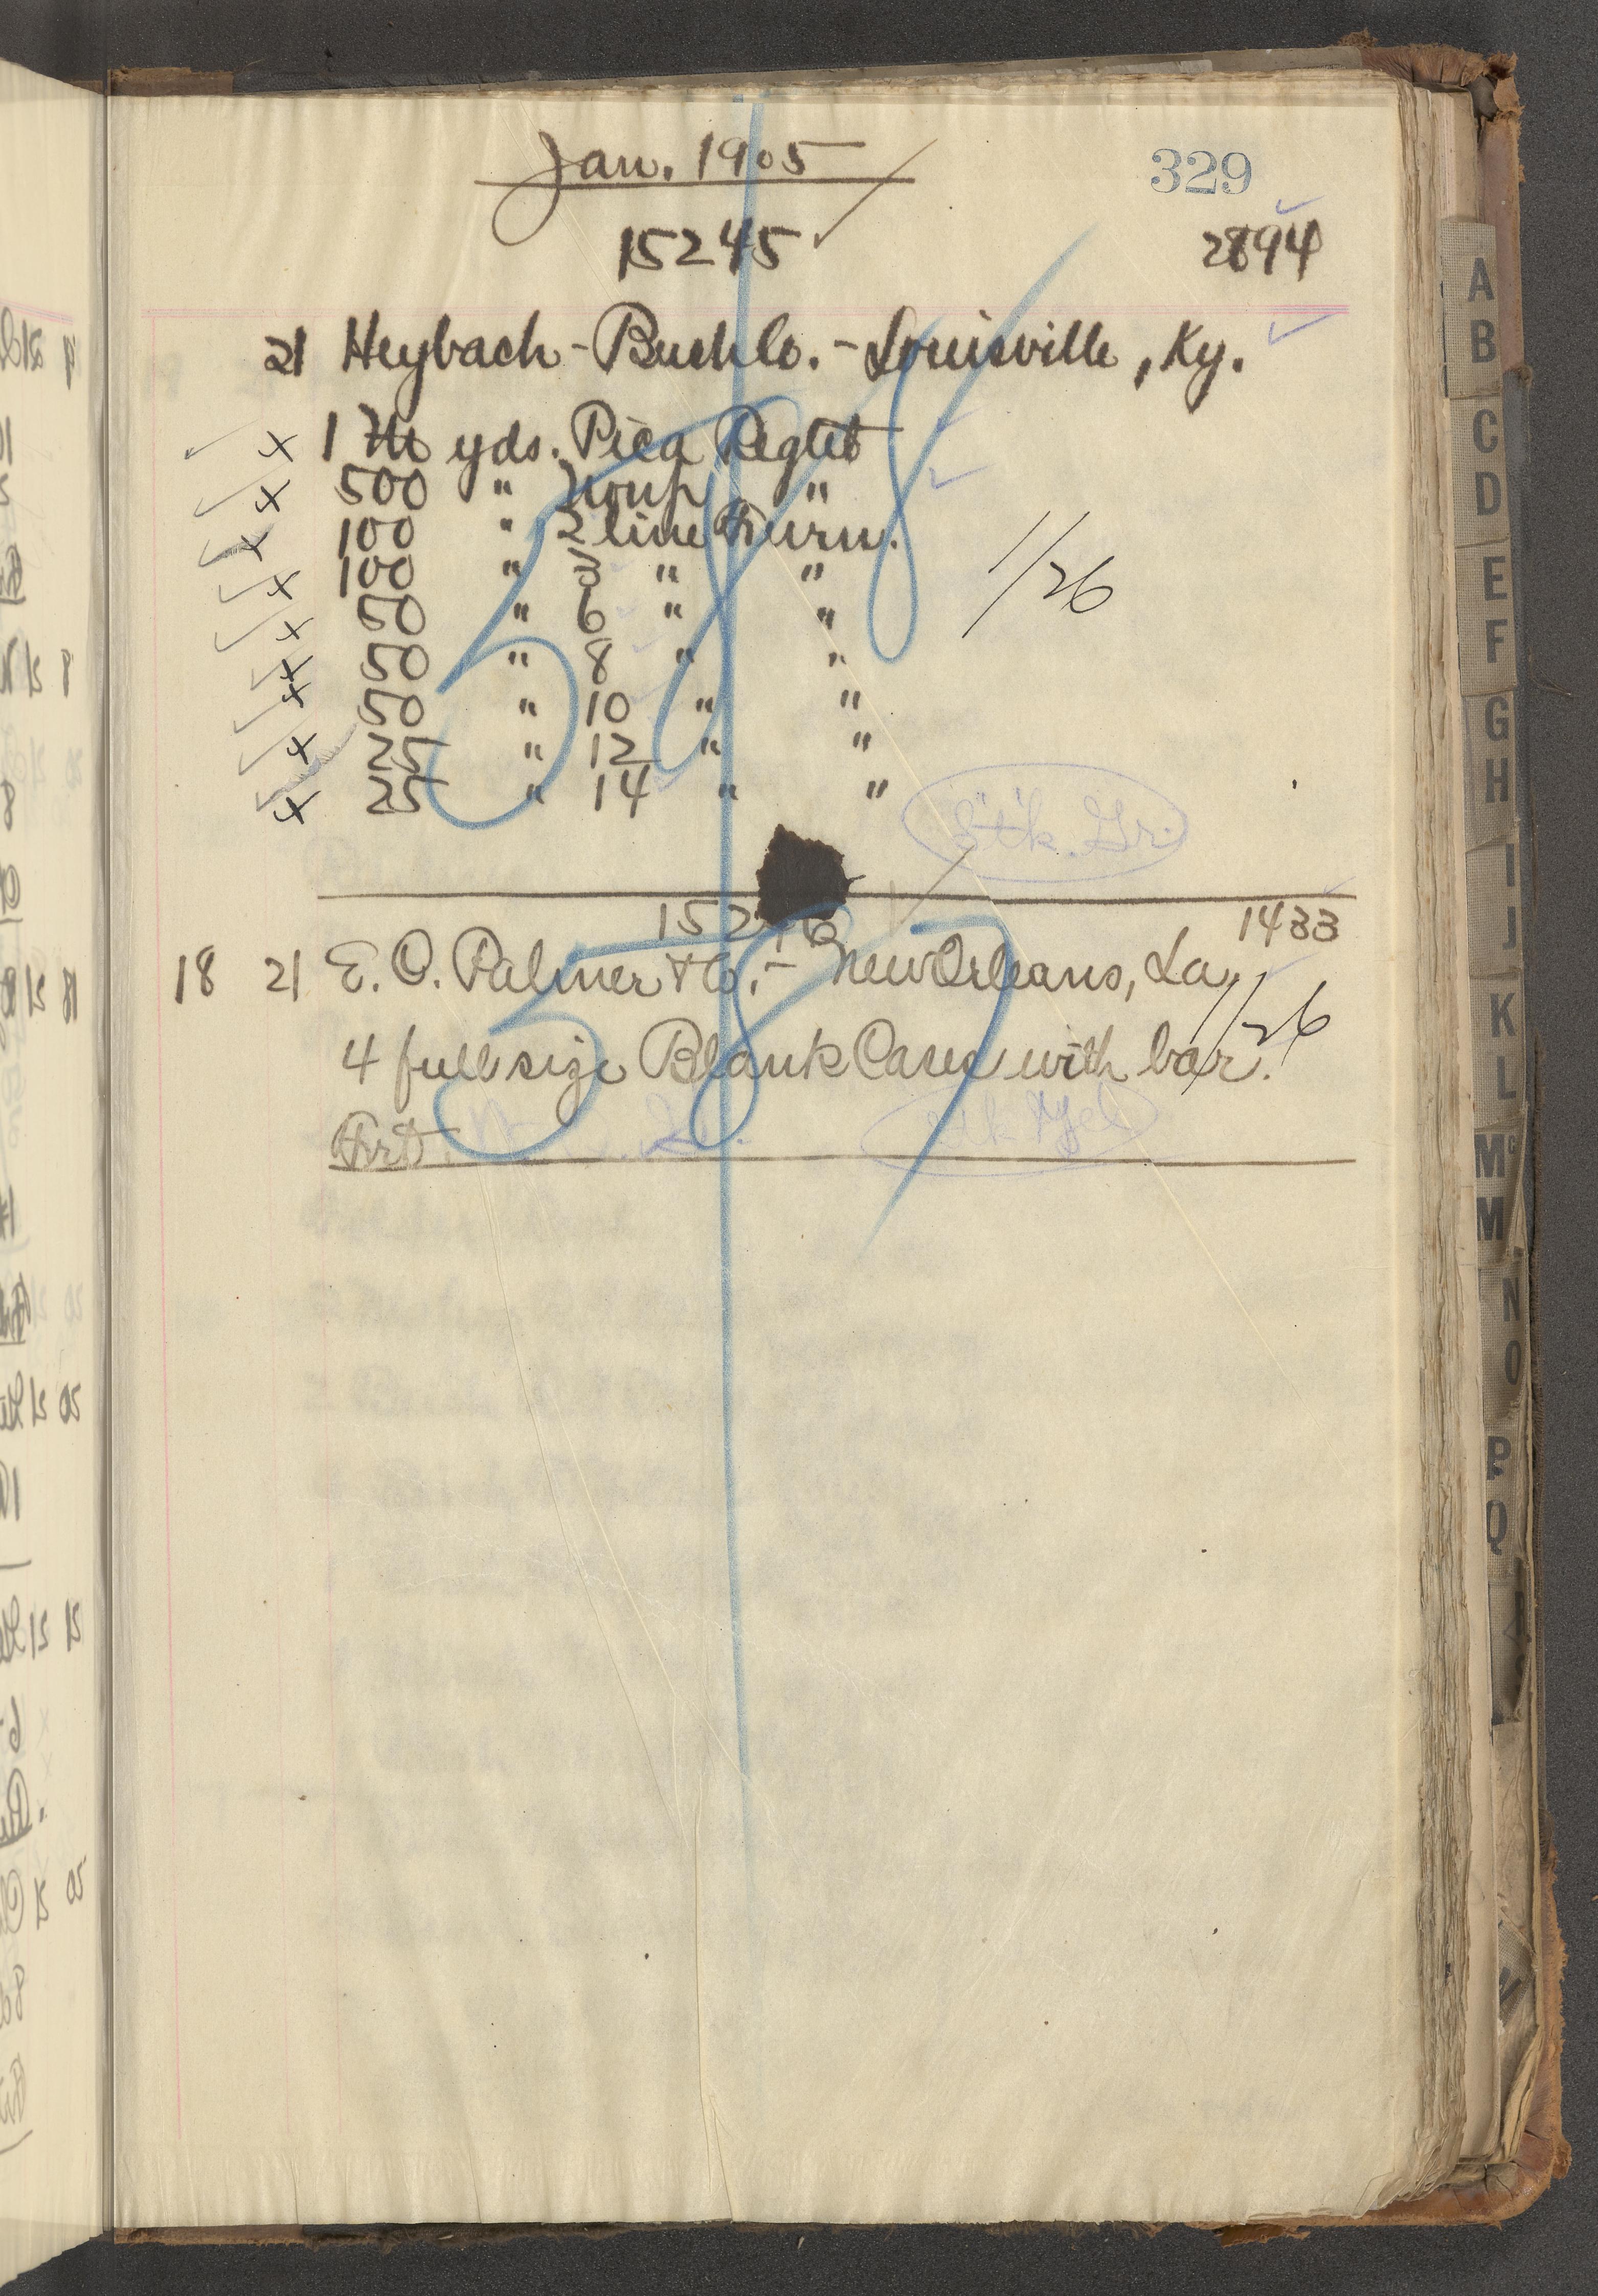 Jan. 1905
329
15245
2894
21 Heybach-Bush Co. - Louisville, Ky.
x 1 M yds. Pica Reglet
x 500 " Nonp "
x 100 " 2 line Furn.
x 100 " 3 " "
x 50 " 6 " "
1/26
x 50 " 8 " "
x 50 " 10 " "
x 25 " 12 " "
x 25 " 14 " "
Stk. Gr.
15246
1433
18 21 E. O. Palmer & Co. - New Orleans, La.
1/26
4 full size Blank Cases with bar.
Frt.
587
A
B
C
D
E
F
G
H
I
J
K
L
Mc
M
N
O
P
Q